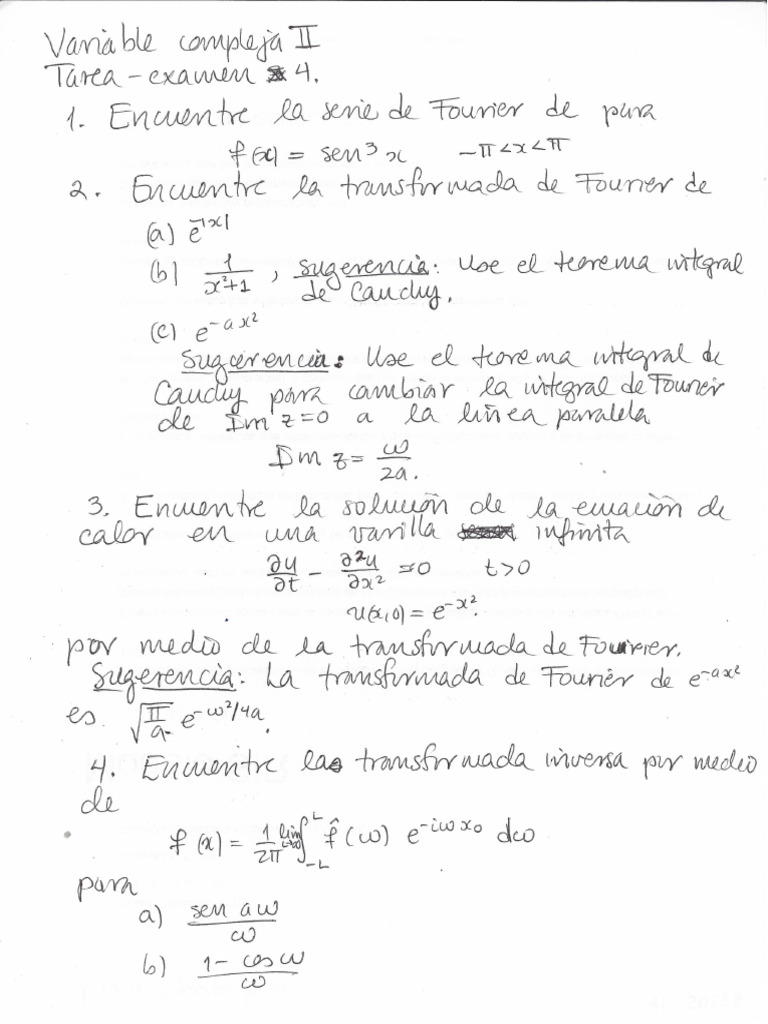 Variable compleja II
Tarea - examen 4.
1. Encuentre la serie de Fourier de para
f(x) = sen³ x   -π < x < π
2. Encuentre la transformada de Fourier de
(a) e^{-|x|}
(b) 1/(x²+1) , sugerencia: Use el teorema integral
de Cauchy.
(c) e^{-ax²}
Sugerencia: Use el teorema integral de
Cauchy para cambiar la integral de Fourier
de Im z=0 a la línea paralela
Im z = ω/2a.
3. Encuentre la solución de la ecuación de
calor en una varilla infinita
∂u/∂t - ∂²u/∂x² = 0   t>0
u(x,0) = e^{-x²}.
por medio de la transformada de Fourier.
Sugerencia: La transformada de Fourier de e^{-ax²}
es √(π/a) e^{-ω²/4a}.
4. Encuentre la transformada inversa por medio
de
f(x) = 1/2π lim_{L→∞} ∫_{-L}^{L} f̂(ω) e^{-iωx₀} dω
para
a) sen aω/ω
b) 1 - cos ω/ω